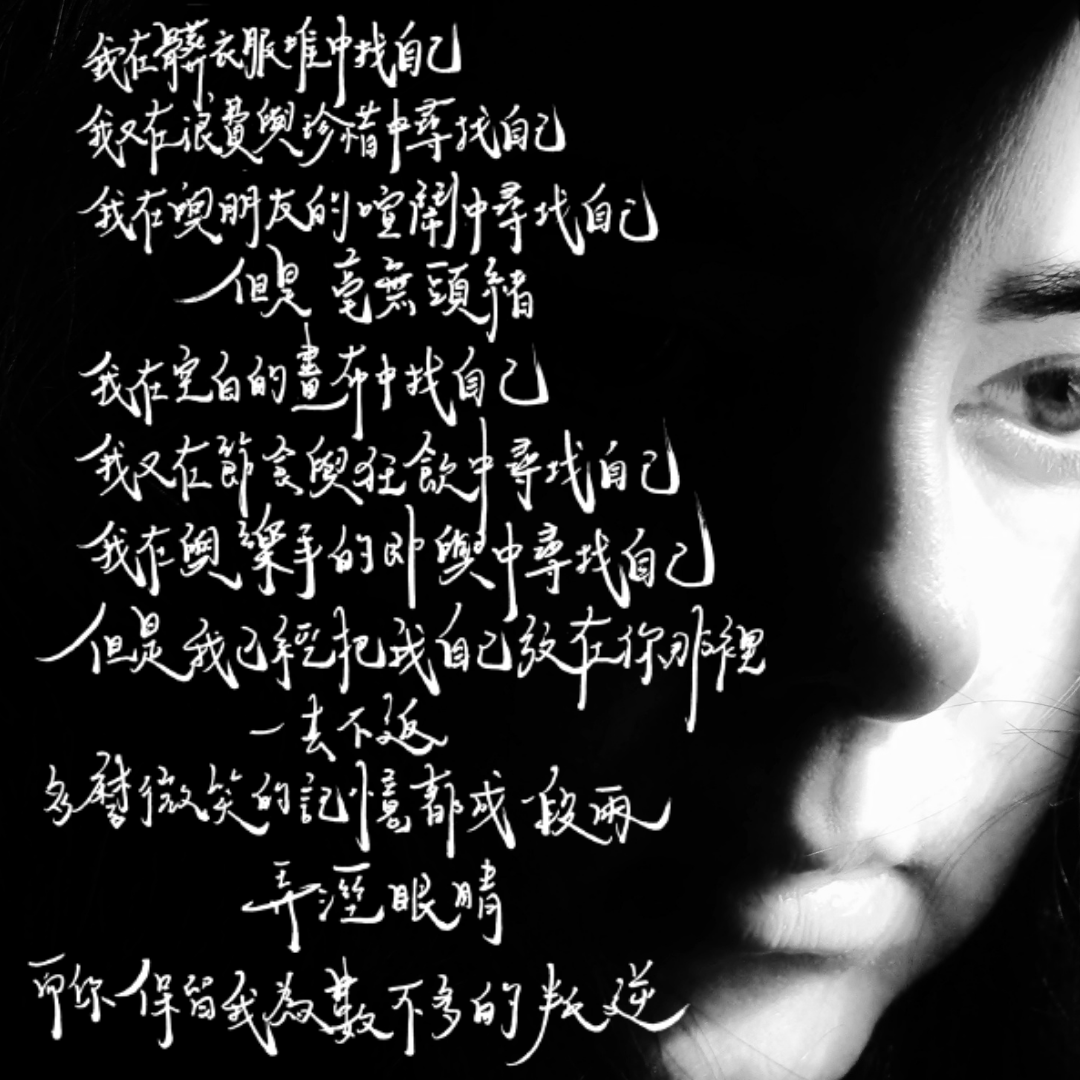 我在髒衣服堆中找自己
我又在浪費與珍惜中尋找自己
我在與朋友的喧鬧中尋找自己
但是毫無頭緒
我在空白的畫布中找自己
我又在節食與狂飲中尋找自己
我在與樂手的即興中尋找自己
但是我已經把我自己放在你那裡
一去不返
多麼微笑的記憶都成一段雨
弄溼眼睛
而你保留我為數不多的叛逆